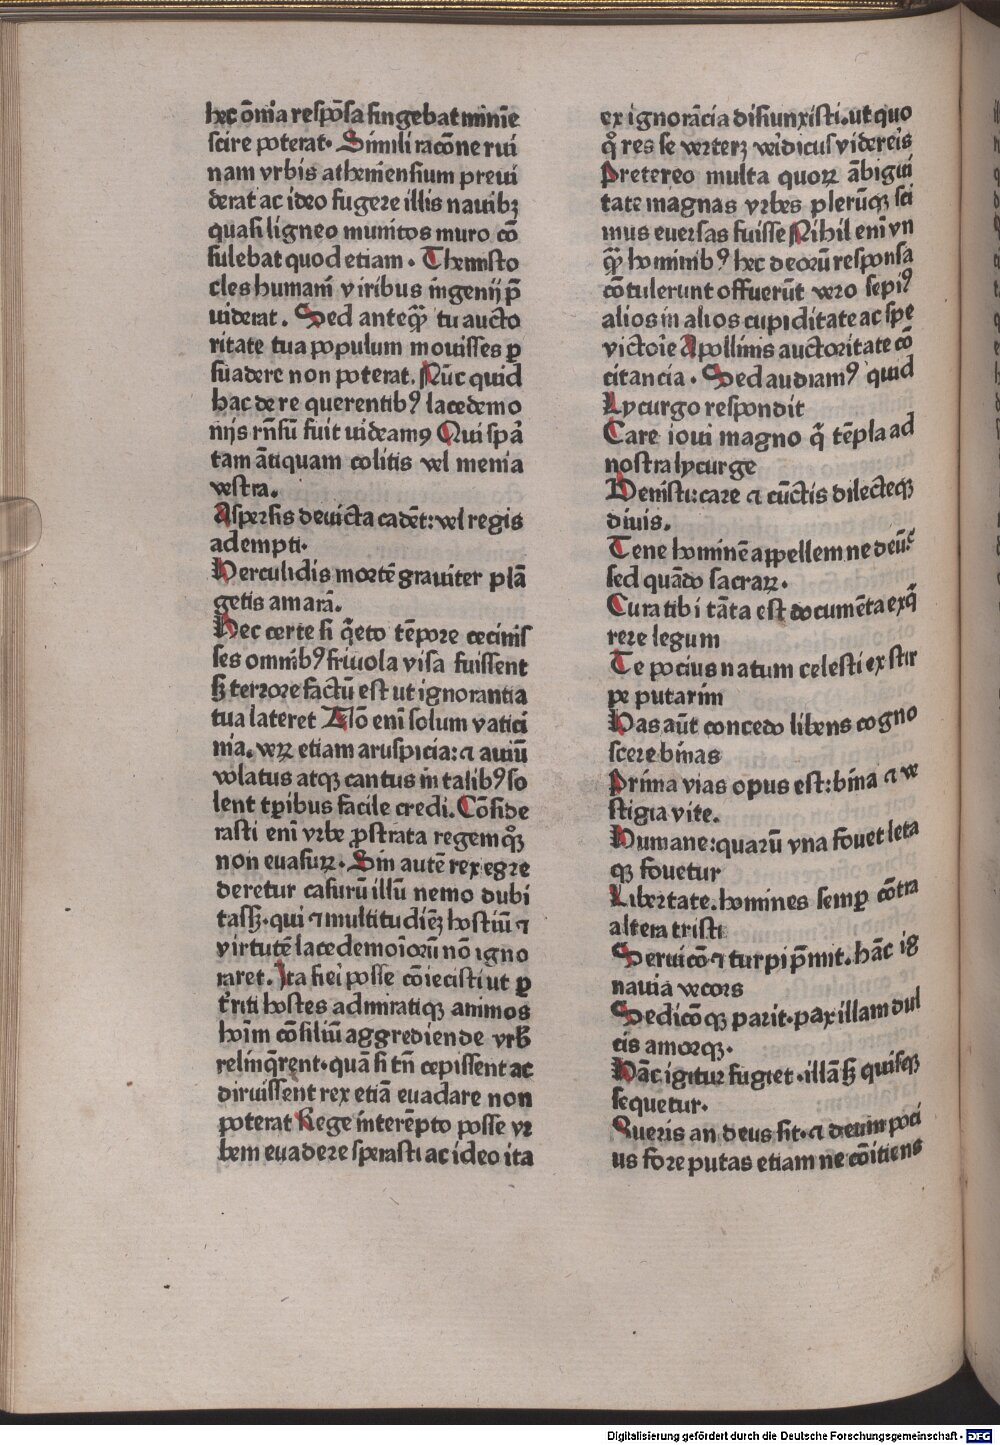 hec ōnia respōsa fingebat minīe
scire poterat. Simili racōne rui
nam vrbis atheniensium preui
derat ac ideo fugere illis nauibꝫ
quasi ligneo munitos muro cō
sulebat quod etiam. Themisto
cles humani viribus ingenij p̄
uiderat. Sed anteqꝫ̄ tu aucto
ritate tua populum mouisses ꝑ
suadere non poterat. Nūc quid
hac de re querentibꝰ lacedemo
nijs rn̄sū fuit uideamꝰ Qui spā
tam ātiquam colitis vel menia
vestra.
A persis deuicta cadēt: vel regis
adempti.
Herculidis mortē grauiter plā
getis amarā.
Hec certe si q̄eto tēpore cecinis
ses omnibꝰ friuola visa fuissent
sꝫ terrore factū est ut ignorantia
tua lateret Nō eni solum vatici
nia. veꝝ etiam aruspicia: ⁊ auiū
volatus atqꝫ cantus in talibꝰ so
lent tꝑibus facile credi. Cōside
rasti eni vrbe ꝓstrata regem qͦꝫ
non euasuꝝ. Sin autē rex egre
deretur casurū illū nemo dubi
tassꝫ. qui ⁊ multitudiēꝫ hostiū ⁊
virtutē lacedemoiorū nō igno
raret. Ita fiei posse cōiecisti ut ꝑ
t̓riti hostes admiratiqꝫ animos
hoim cōsiliū aggrediende vrb̄
relinq̄rent. quā si tn̄ cepissent ac
diruissent rex etiā euadare non
poterat Rege interēpto posse vr
bem euadere sperasti ac ideo ita
ex ignorācia disiunxisti. ut quo
qͦ̄ res se verterꝫ veidicus videreis
Pretereo multa quoꝝ ābigui
tate magnas vrbes plerūqꝫ sci
mus euersas fuisse Nihil eni vn
qꝫ̄ hominibꝰ hec deorū responsa
cōtulerunt offuerūt vero sepiꝰ
alios in alios cupiditate ac spe
victorie Apollinis auctoritate cō
citancia. Sed audiamꝰ quid
Lycurgo respondit
Care ioui magno q̄ tēpla ad
nostra lycurge
Venisti: care ⁊ cūctis dilecteqꝫ
diuis.
Tene hominē appellem ne deū:
sed quādo sacraꝝ.
Cura tibi tāta est documēta exq̄
rere legum
Te pocius natum celesti ex stir
pe putarim
Has aūt concedo libens cogno
scere binas
Prima vias opus est: bina ⁊ ve
stigia vite.
Humane: quarū vna fouet leta
qꝫ fouetur
Libertate. homines semꝑ cōtra
altera tristi
Seruicō ⁊ turpi p̄mit. hāc ig
nauia vecors
Sedicōqꝫ parit. pax illam dul
cis amorqꝫ.
Hāc igitur fugiet. illā sꝫ quisqꝫ
sequetur.
Queris an deus sit. ⁊ deum poci
us fore putas etiam ne cōitiens
Digitalisierung gefördert durch die Deutsche Forschungsgemeinschaft - DFG